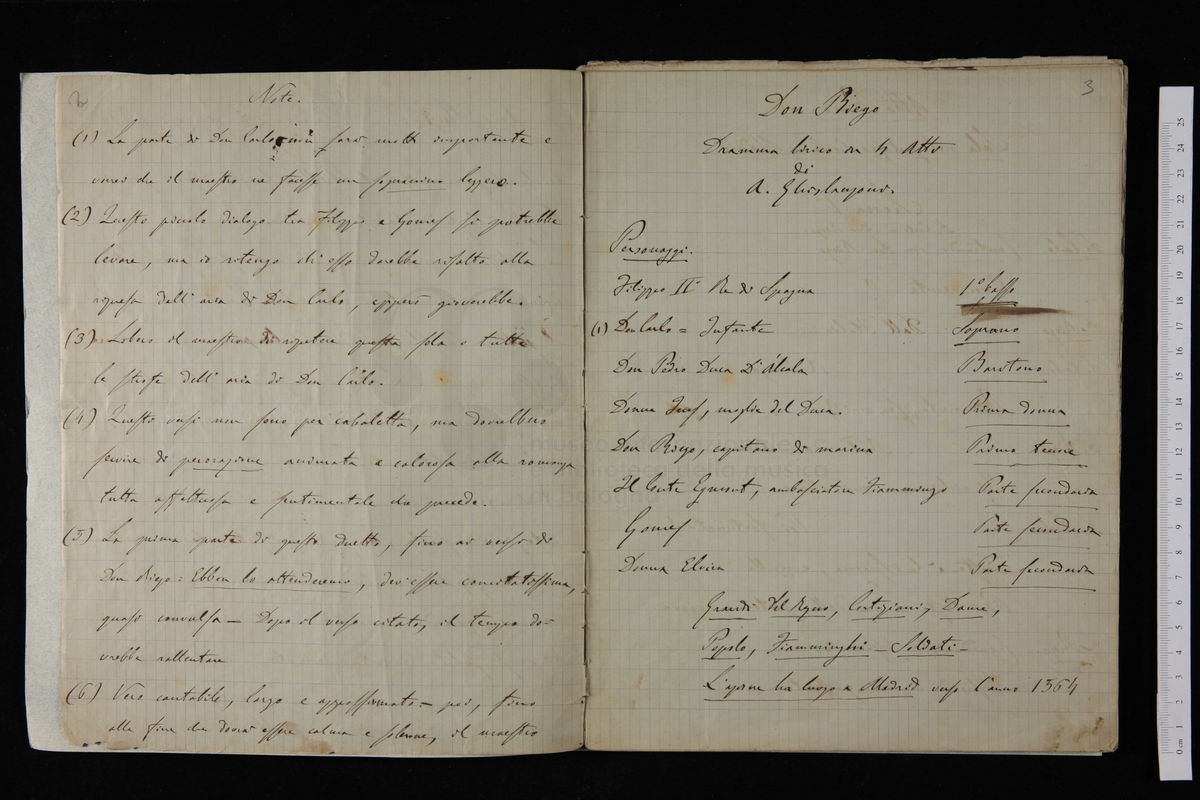 2
Note.
(1) La parte di Don Carlo non sarà molto importante e
vorrei che il maestro ne facesse un sopranino leggero.
(2) Questo piccolo dialogo tra Filippo e Gomes si potrebbe
levare, ma io ritengo ch'esso darebbe risalto alla
ripresa dell'aria di Don Carlo, epperò gioverebbe.
(3) Libero il maestro di ripetere questa sola o tutte
le strofe dell'aria di Don Carlo.
(4) Questi versi non sono per cabaletta, ma dovrebbero
servire di perorazione animata e calorosa alla romanza
tutta affettuosa e sentimentale che precede.
(5) La prima parte di questo duetto, fino ai versi di
Don Riego: Ebben lo attenderemo, dev'essere concitatissima,
quasi convulsa — Dopo il verso citato, il tempo do-
vrebbe rallentare
(6) Vero cantabile, largo e appassionato — poi, fino
alla fine che dovrà essere calma e solenne, il maestro
3
Don Riego
Dramma lirico in 4 Atti
di
A. Ghislanzoni.
Personaggi.
Filippo II° Re di Spagna 1° basso
(1) Don Carlo = Infante Soprano
Don Pedro Duca D'Alcala Baritono
Donna Ines, moglie del Duca. Prima donna
Don Riego, capitano di marina Primo tenore
Il Conte Egmont, ambasciatore Fiammingo Parte secondaria
Gomes Parte secondaria
Donna Elvira Parte secondaria
Grandi del Regno, Cortigiani, Dame,
Popolo, Fiamminghi — Soldati —
L'azione ha luogo a Madrid verso l'anno 1564